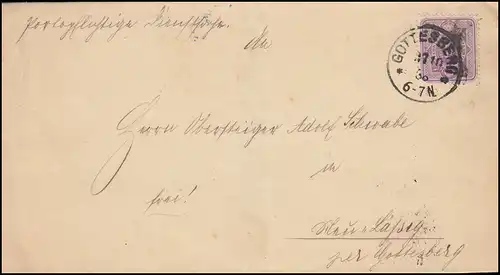 Portopflichtige Dienstsache.
An
GOTTESBERG
6-7N
Herrn Obersteiger Adolf Schwabe
in
frei!
Neu-Lässig
per Gottesberg